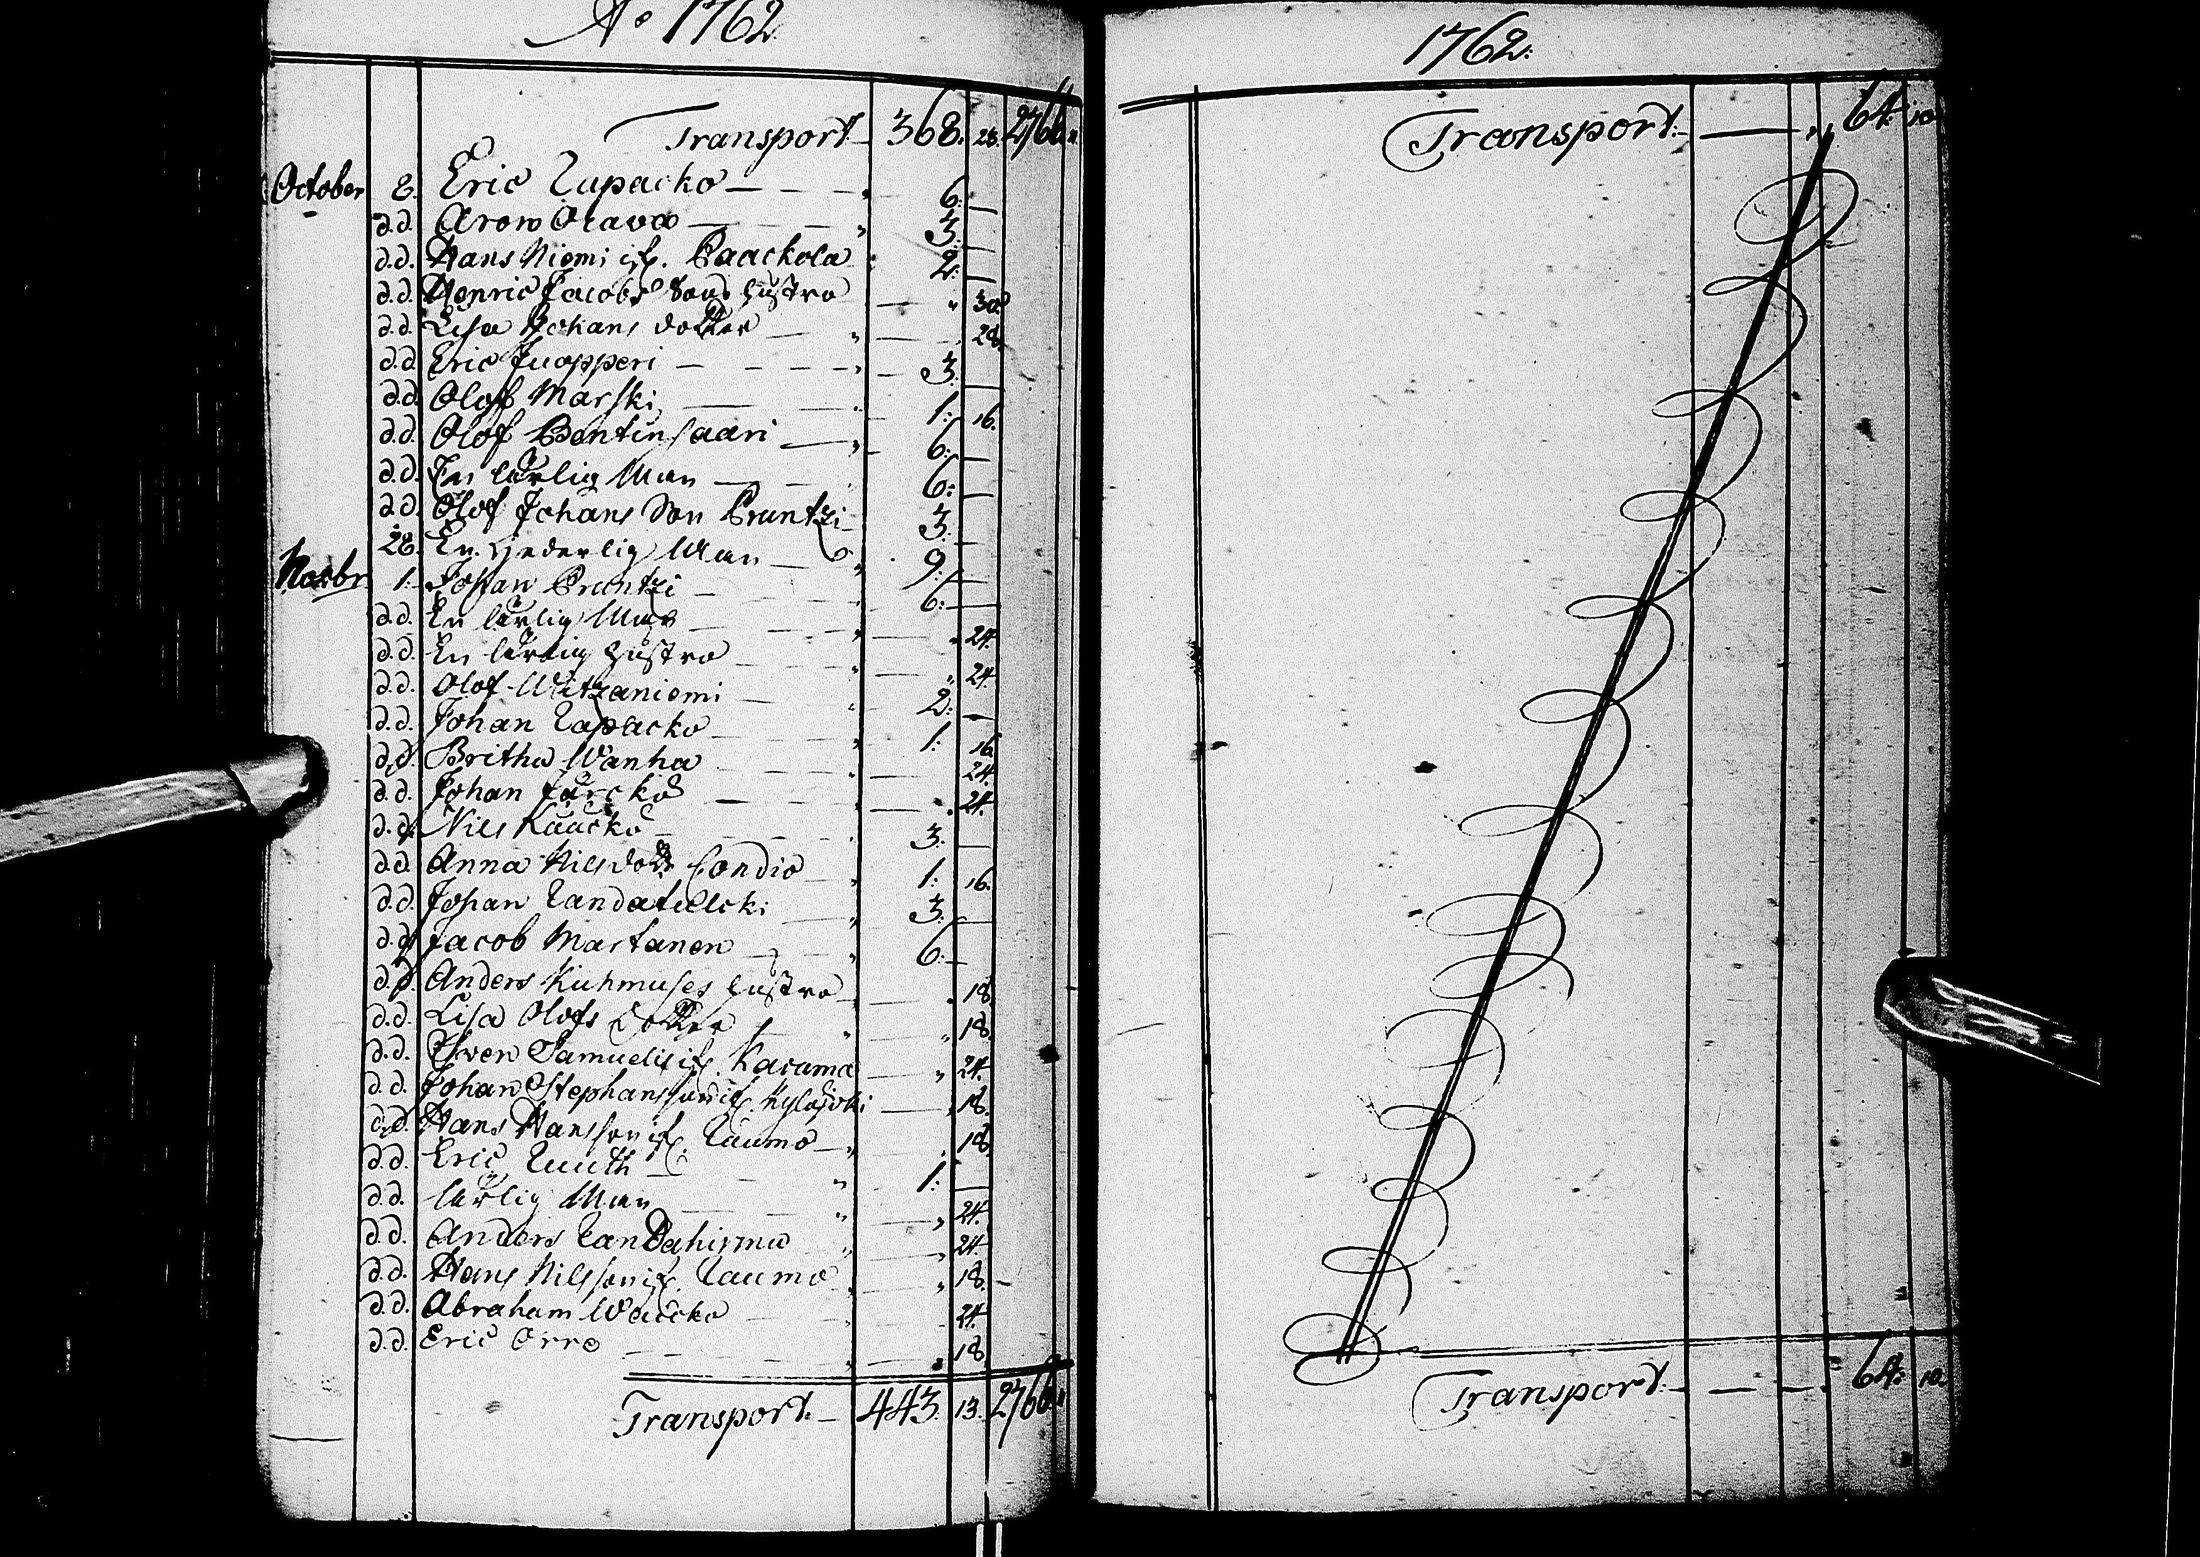 Ao 1762
Transport 368. 28. 2766.
October 8. Eric Lapacko 6. —
d.d. Aron Orava 3. —
d.d. Hans Niemi if. Paackola 2. —
d.d. Henric Jacobs Sons hustro " 30.
d.d. Lisa Johans dotter " 28.
d.d. Eric Juopperi 3. —
d.d. Olof Marski 1. 16.
d.d. Olof Pentinsaari 6. —
d.d. En ärlig Man 6. —
d.d. Olof Johans Son Prantzi 3. —
28. En Hederlig Man 9. —
Novbr. 1. Johan Prantzi 6. —
d.d. En ärlig Man " 24.
d.d. En ärlig hustro " 24.
d.d. Olof Witzaniemi 2. —
d.d. Johan Lapacko 1. 16.
d.d. Britha Wanha 24.
d.d. Johan Jurcko 24.
d.d. Nils Kaacko 3. —
d.d. Anna Nilsdott. Condio 1. 16.
d.d. Johan Landatulcki 3. —
d.d. Jacob Martanen 6. —
d.d. Anders Kuhmuses hustro 18.
d.d. Lisa Olofs Dotter " 18.
d.d. Swen Samuels if. Karama " 24.
d.d. Johan Stephansson if. Kyläjoki 18.
d.d. Hans Hansson if. Laumo 18.
d.d. Eric Ruuth 1. —
d.d. ärlig Man " 24.
d.d. Anders Landahirmu 24.
d.d. Hans Nilsson if. Laumo " 18.
d.d. Abraham Waacko 24.
d.d. Eric Orre 18.
Transport. 443. 13. 2766.
1762.
Transport. 64. 10.
Transport. 64. 10.